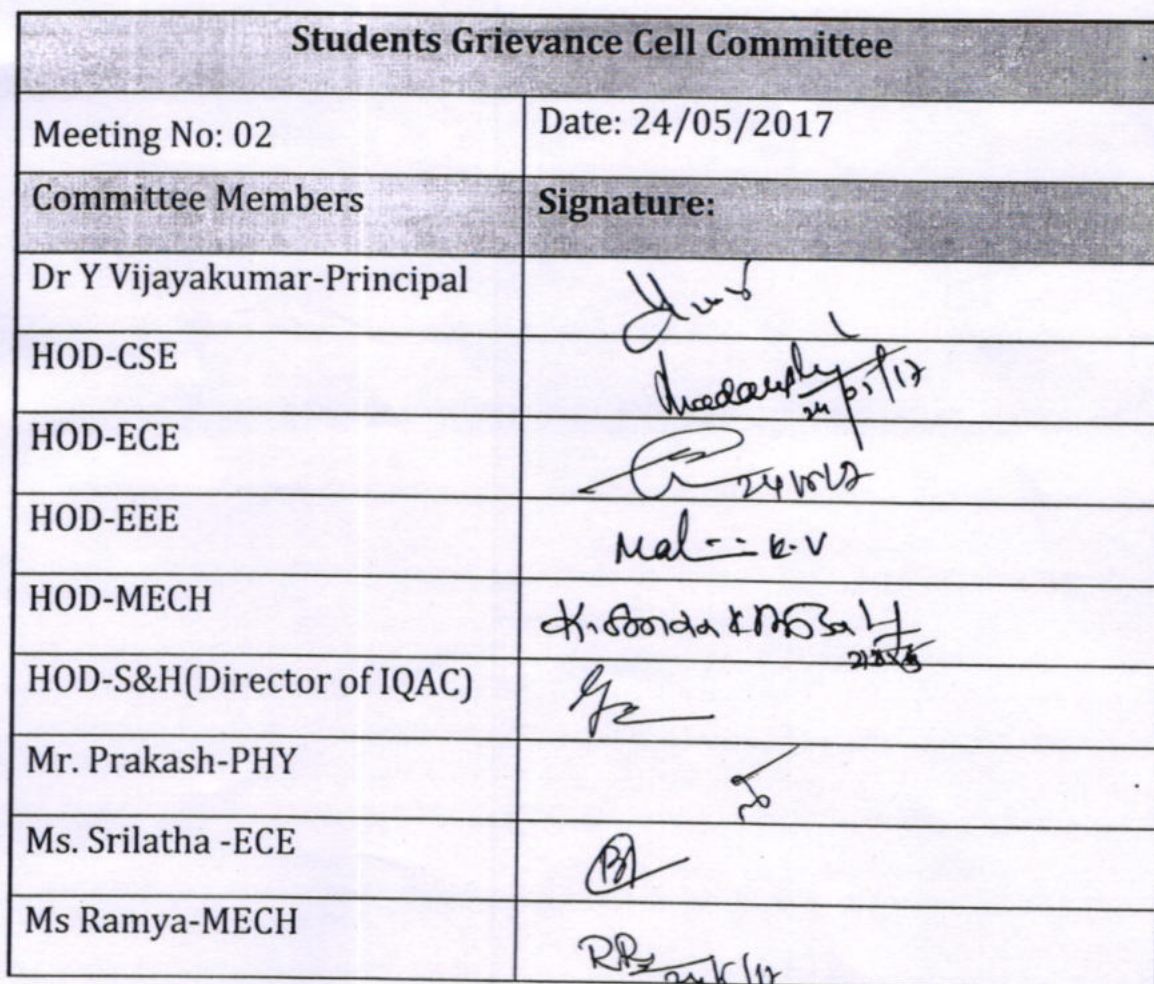 Students Grievance Cell Committee
Meeting No: 02 Date: 24/05/2017
Committee Members Signature:
Dr Y Vijayakumar-Principal
HOD-CSE 24/05/17
HOD-ECE
HOD-EEE K.V
HOD-MECH
HOD-S&H(Director of IQAC)
Mr. Prakash-PHY
Ms. Srilatha -ECE
Ms Ramya-MECH